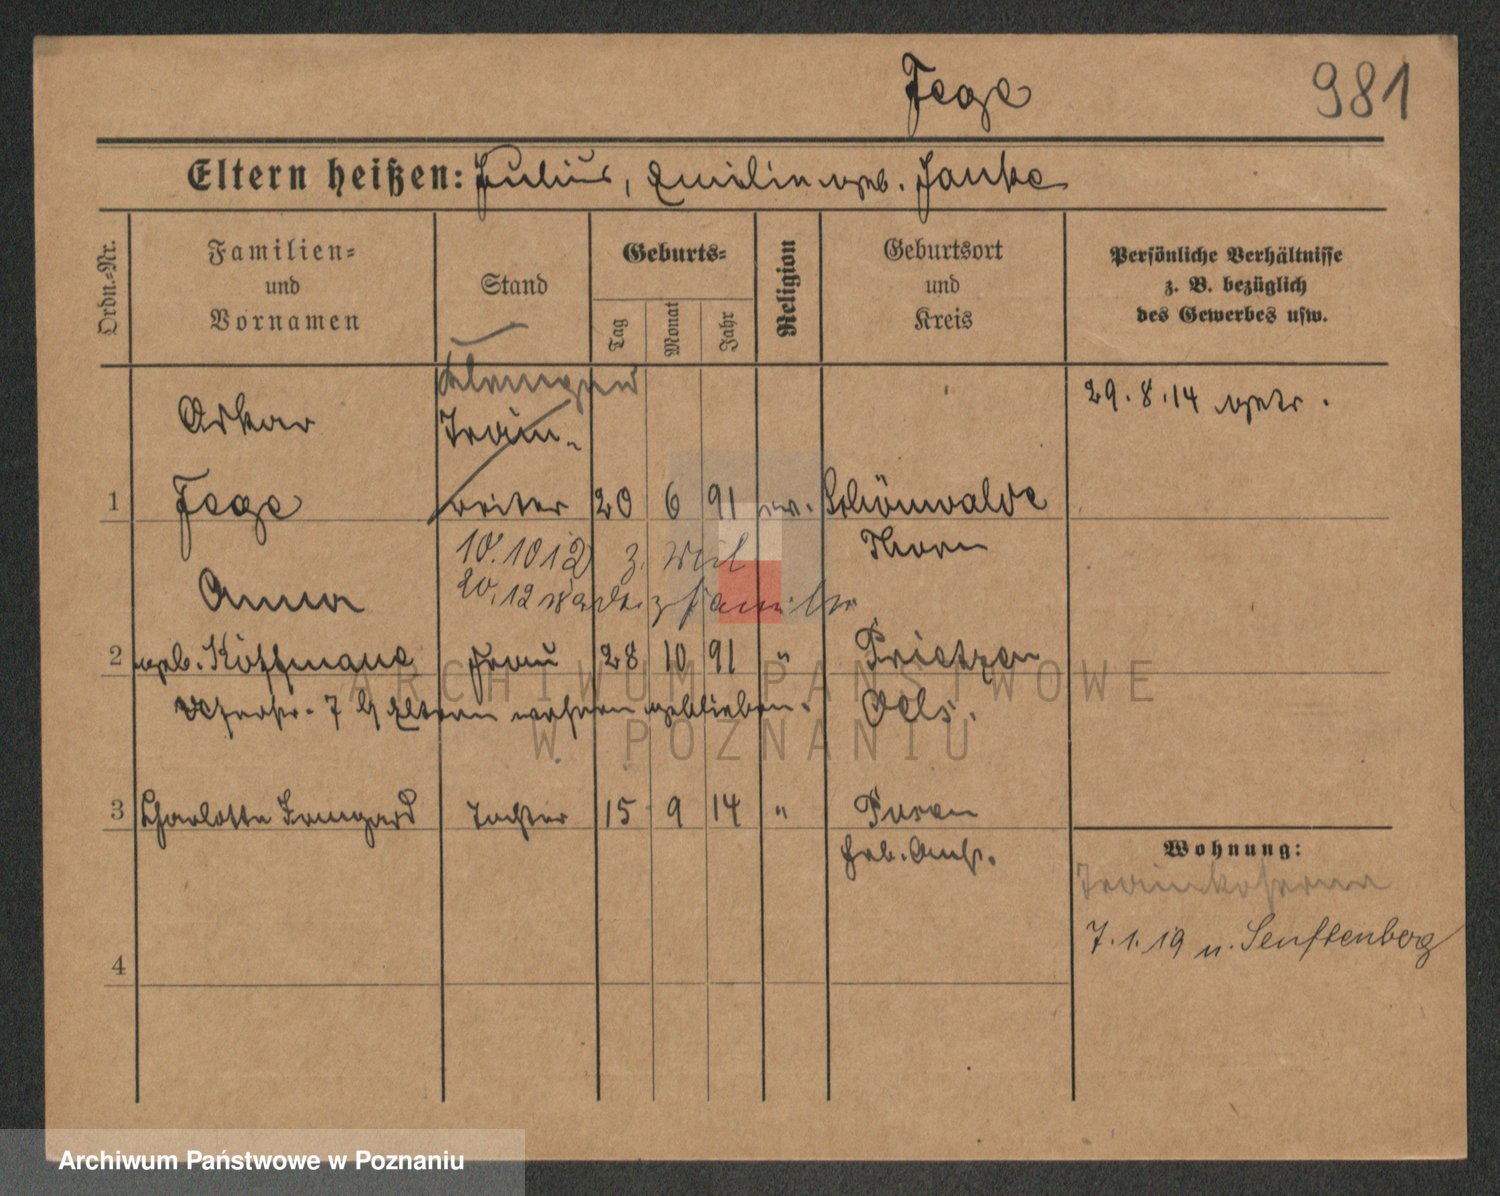 Fege
981
Eltern heißen: Julius, Emilie geb. Janke
Ordn.=Nr.
Familien=
und
Vornamen
Stand
Geburts=
Tag
Monat
Jahr
Religion
Geburtsort
und
Kreis
Persönliche Verhältnisse
z. B. bezüglich
des Gewerbes usw.
Oskar
Train-
29.8.14 getr.
1 Fege reiter 20 6 91 ev. Schönwalde
10.10 12 z. Mil
Thorn
Anna
20.12
2 geb. Koffmane Frau 28 10 91 " Prietzen
7 b Eltern wohnen geblieben.
Oels.
3 Charlotte Irmgard Tochter 15 9 14 " Posen
Geb. Anst.
Wohnung:
Trainkaserne
7.1.19 n. Senftenberg
4
ARCHIWUM PAŃSTWOWE
W POZNANIU
Archiwum Państwowe w Poznaniu